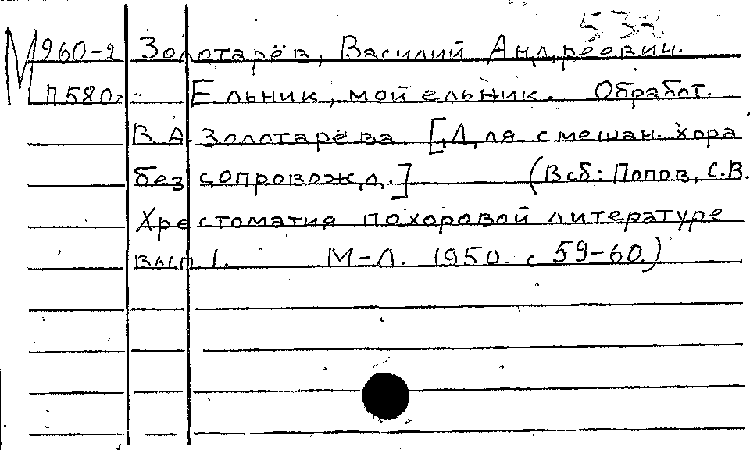 532
М 960-2 Золотарёв, Василий Андреевич.
П580 Ельник, мой ельник. Обработ.
В.А. Золотарёва. [Для смешан. хора
без сопровожд.] (В сб: Попов, С.В.
Хрестоматия по хоровой литературе
вып 1. М-Л. 1950. с 59-60.)